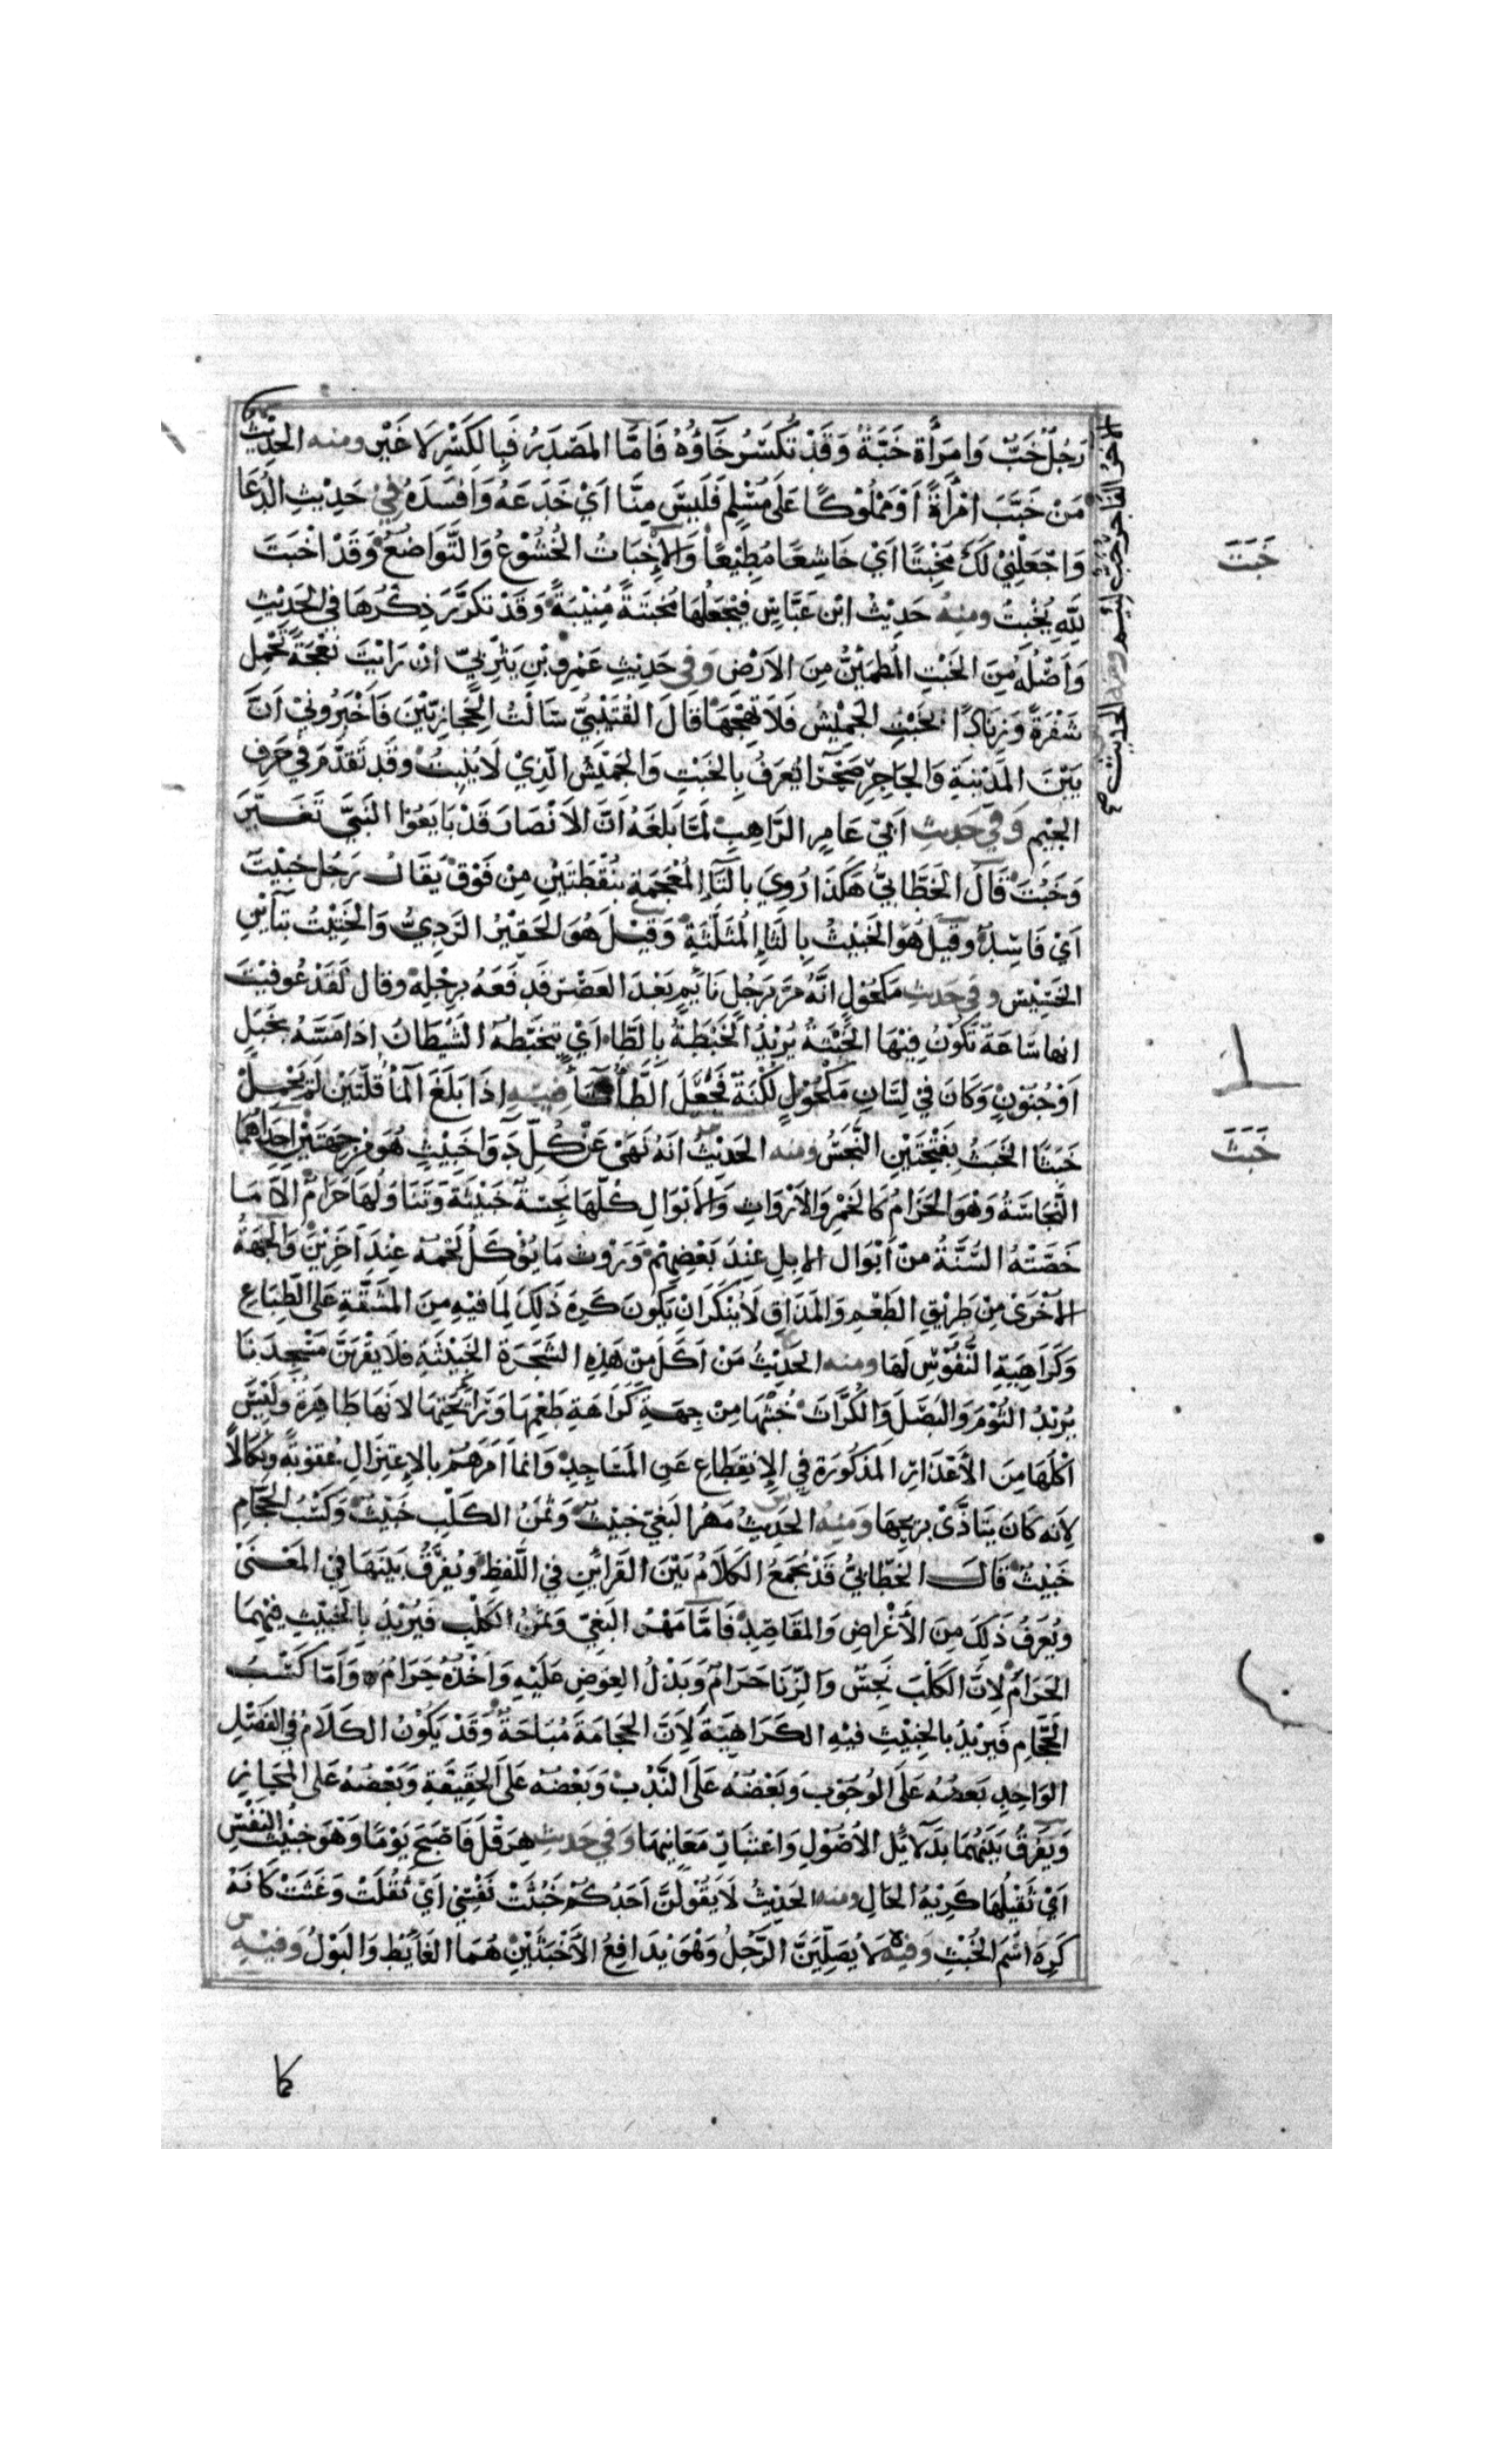 رَجُلٌ خَبٌّ وَامرَأَة خَبَّةٌ وَقَدْ تُكسَرُ خَآؤُهُ فَامَّا المَصْدَرُ فَبِالكَسْرِ لَا غَيْر ومنه الحَدِيْثُ
مَنْ خَبَّبَ امْرَأَةً اَوْ مَمْلُوْكًا عَلَى مُسْلِمٍ فَلَيْسَ مِنَّا اَيْ خَدَعَهُ وَافْسَدَهُ فِيْ حَدِيْثِ الدُّعَا
وَاجْعَلْنِيْ لَكَ مُخْبِتًا اَيْ خَاشِعًا مُطِيْعًا وَالْاِخْبَاتُ الخُشُوْعُ وَالتَّوَاضُعُ وَقَدْ اخْبَتَ
لِلّهِ يُخْبِتُ ومنِهُ حَدِيْثُ ابْنِ عَبَّاسٍ فَيَجْعَلُهَا مُخْبِتَةً مُنِيْبَةً وَقَدْ تَكَرَّرَ ذِكْرُهَا فى الحَدِيْثِ
وَاَصْلُهُ مِنَ الخَبْتِ المُطْمَئِنُّ مِنَ الاَرْضِ وَفِى حَدِيْثِ عَمْرِو بْنِ يَثْرِبِيّ اِنْ رَاَيْتَ نَعْجَةً تَحْمِل
شَفْرَةً وَزِنَادًا بخَبْتِ الجَمِيْشِ فَلَا تَهِجْهَا قَالَ القُتَيْبِيُّ سَالْتُ الحِجَازِيّيْنَ فَاَخْبَرُونِيْ اَنَّ
بَيْنَ المَدْيَنةِ وَالحِجَاز صَحْرَا تُعرَفُ بِالخَبْتِ وَالجَمْيِشُ الَّذِيْ لَا يُنْبِتُ وَقَدِ تَقَدَّمَ في حَرفِ
الجِيْم وَفِي حَدِيثِ اَبِيْ عَامِرٍ الرَّاهِبِ لَمَّا بَلَغَهُ اَنَّ الاَنْصَارَ قَدْ بَايَعُوْا النَبِيَّ تَغَــيَّرَ
وَخَبُتَ قَالَ الخَطَّابِيُّ هَكَذَا رُوِيَ بالتَّاءِ المُعْجَمَةِ بِنُقْطَتَيْنِ مِنْ فَوْقُ يُقَالُ رَجُل خَبِيْتٌ
اَيْ فَاسِدٌ وقيل هُوَ الخَبِيْثُ بِالثَّاءِ المُثَلَّثَةِ وَقِيْلَ هُوَ الحَقِيْرُ الرَدِيُّ وَالخَتِيْتُ بتَآيْنِ
الخَسِيْس وفي حَدِيثِ مَكْحُوْلٍ اِنَّهُ مَرَّ بِرَجُلٍ نَايمٍ بَعْدَ العَصْر فَدَفَعَهُ بِرِجْلِهِ وقال لَقَدْ عُوفِيْتَ
انها سَاعَة تَكُوْنُ فِيْهَا الخَبْتَةُ يُرِيْدُ الخَبْطَةُ بِالطَّاءِ اَيْ يتَخَبَّطُهُ الشَّيْطَان اِذَا مَسَّهُ بخَبْلٍ
اَوْ جُنُوْنٍ وَكَانَ فِي لِسَانِ مَكْحُوْلٍ لُكْنَةٌ فَجَعَلَ الطَّاءَ تَآءً فِيْهِ اِذَا بَلَغَ المَآءُ قُلَّتَيْنِ لَمْ يَحْمِلْ
خَبَثًا الخَبَثُ بفَتْحَتَيْنِ النَّجَسُ ومنه الحَدِيْثُ انَهُ نَهَىْ عَنْ كُلِّ دَوَاء خَبِيْثٍ هُوَ مِنْ جِهَتَيْن اِحْدَاهُمَا
النَّجَاسَةُ وَهُوَ الحَرَامُ كَالخَمْرِ وَالاَرْوَاثِ وَالاَبْوَالِ كُلّهَا نَجِسَةٌ خَبِيْثَةٌ وَتَنَاوُلُهَا حَرَامٌ الاَّ مَا
خَصَّتْهُ السُّنَّةُ مِنْ اَبْوَالِ الاِبِلِ عِنْدَ بَعْضِهِمْ وَرَوْثِ مَا يُؤْكَلُ لَحْمُهُ عِنْدَ آخَرِيْنَ وَالجِهَةُ
الاُخْرَىْ مِنْ طَرِيْقِ الطَعْمِ وَالمَذَاقِ لَا يُنكَرُ اَنْ يَكُونَ كَرِهَ ذَلِكَ لِمَا فِيْهِ مِنَ المَشَقَّةِ عَلَى الطِّبَاعِ
وَكَرَاهِيَةِ النُّفُوْسِ لَهَا ومنه الحَدِيْثُ مَنْ اَكَلَ مِنْ هَذِهِ الشَّجَرَة الخَبِيْثَةِ فلا يَقْرَبَنَّ مَسْجِدَنَا
يُرِيْدُ الثُّوْمَ وَالبَصَلَ وَالكُرَّاثَ خُبْثُهَا مِنْ جِهَـةِ كَرَاهَةِ طَعْمِهَا وَرَائِحَتِهَا لانَهَا طَاهِرَة وَلَيْسَ
اَكْلُهَا مِنَ الأَعْذَارِ المَذكُورَةِ فِي الاِنقِطَاعِ عَنِ المَسَاجِدِ وَاِنما اَمَرَهُمْ بالاِعتِزَالِ عُقوبَةً ونكَالاً
لِاَنه كَانَ يَتَاذَّىْ بِرِيْحِهَا وَمنِهُ الحَدِيثُ مَهْرُ البَغِيِّ خَبِيْثٌ وَثَمَنُ الكَلْبِ خَبِيْثٌ وَكَسْبُ الحَجَّامِ
خَبِيْثٌ قَالَ الخَطَّابِيُّ قَدْ يُجْمَعُ الكَلاَمُ بَيْنَ القَرَائنِ فِي اللَّفظِ وَيُفَرَّقُ بَيْنَهَا فِي المَعْـنَىْ
وَيُعَرفُ ذَلِكَ مِنَ الأَغْرَاضِ وَالمَقَاصِدِ فَامَّا مَهْرُ البَغِيِّ وَثَمَنُ الكَلْبِ فَيُرِيْدُ بِالخَبِيْثِ فيْهِمَا
الحَرَامَ لِاَنَّ الكَلْبَ نَجِسٌ وَالزِّنَا حَرَامٌ وَبَذْلُ العِوَضِ عَلَيْهِ وَاَخْذُهُ حَرَامٌ وَاَمّا كَسْبُ
الحَجَّامِ فَيُرِيْدُ بالخَبِيْثِ فيْهِ الكَرَاهِيَةَ لِاَنَّ الحِجَامَةَ مُبَاحَةٌ وَقَدْ يَكُوْنُ الكَلَامُ فِي الفَصْلِ
الوَاحِدِ بَعضُهُ عَلَى الوُجُوْبِ وَبَعْضُهُ عَلَى النَّدْبِ وَبَعْضُهُ عَلَى الحَقِيقَةِ وَبَعْضُهُ عَلَى المَجَازِ
وَيُفَرَّقُ بَيْنَهُمَا بِدَلَائِلِ الاُصُوْلِ وَاعْتِبَارِ مَعَانِيهَا وَفي حَدِيْثِ هِرَقْلَ فَاَصْبَحَ يَوْمًا وَهْوَ خَبِيْثُ النَّفْسِ
اَيْ ثَقِيْلُهَا كَرِيْهُ الحَالِ ومنه الحَدِيْثُ لَا يَقُوْلَنَّ اَحَدُكُمْ خَبُثَتْ نَفْسِيْ اَيْ ثَقُلَتْ وَغَثَتْ كَانَهُ
كَرِهَ اسْمَ الخُبْثِ وَفيْهِ لَا يُصَلِّيَنَّ الرَّجُلُ وَهْوَ يُدَافِعُ الاَخْبَثَيْنِ هُمَا الغَائِطُ وَالبَوْلُ وَفيْهِ
كما
خَبَتَ
خَبَثَ